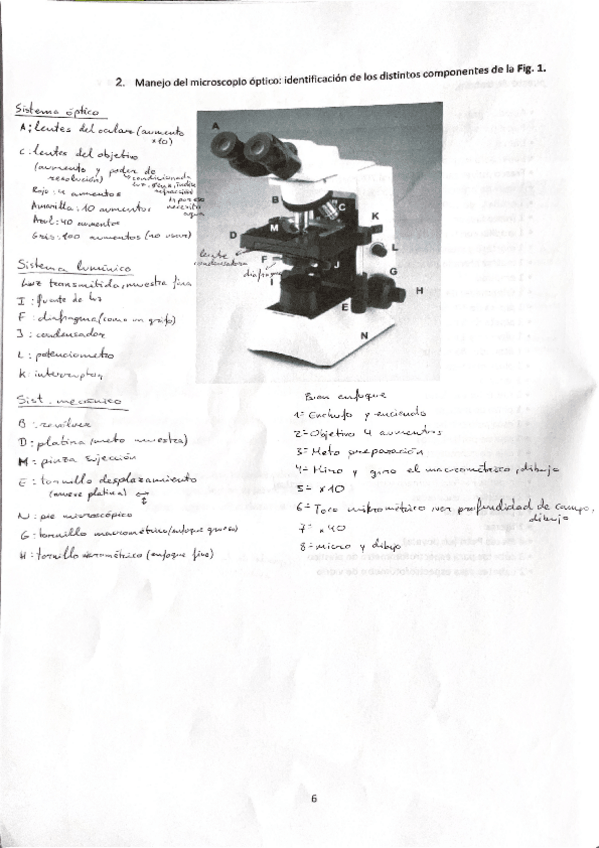 2. Manejo del microscopio óptico: identificación de los distintos componentes de la Fig. 1.
Sistema óptico
A: lentes del ocular (aumento
x10)
C: lentes del objetivo
(aumento y poder de
resolución) → condicionada
Rojo: 4 aumentos
Amarilla: 10 aumentos
necesito
agua
Azul: 40 aumentos
Gris: 100 aumentos (no usar)
Sistema lumínico
Luz transmitida, muestra fina
I: fuente de luz
F: diafragma (como un grifo)
J: condensador
L: potenciometro
K: interruptor
Sist. mecánico
B: revolver
D: platina (meto muestra)
M: pinza sujección
E: tornillo desplazamiento
(mueve platina)
N: pie microscópico
G: tornillo macrométrico (enfoque grueso)
H: tornillo micrométrico (enfoque fino)
A
B
C
K
M
D
L
lente
condensadora
F
J
G
diafragma
I
H
E
N
Buen enfoque
1º Enchufo y enciendo
2º Objetivo 4 aumentos
3º Meto preparación
4º Miro y giro el macrométrico, dibujo
5º x10
6º Toco mikrométrico ver profundidad de campo,
dibujo
7º x40
8º micro y dibujo
6